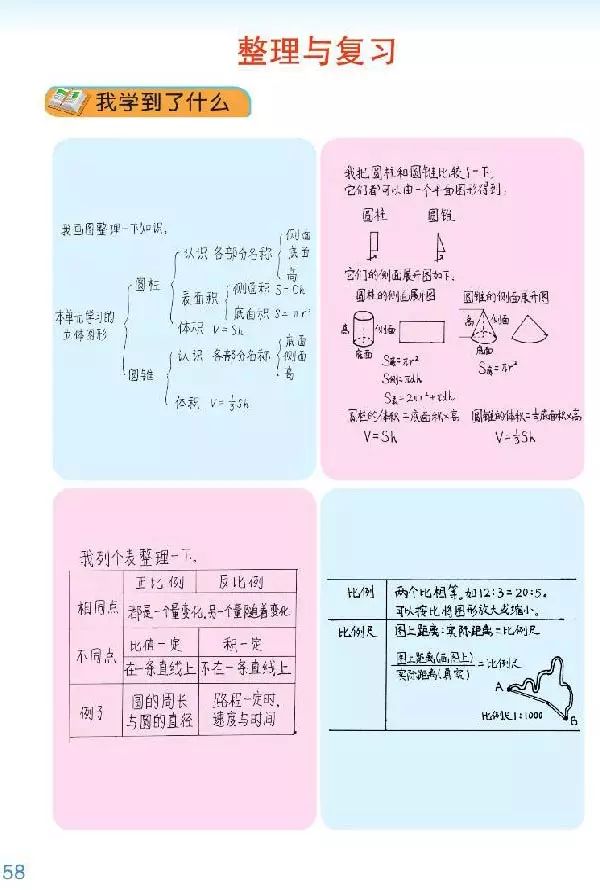 整理与复习
我学到了什么
我画图整理一下知识。
本单元学习的
立体图形
圆柱
认识 各部分名称
侧面
底面
高
表面积
侧面积 S=Ch
底面积 S=πr²
体积 V=Sh
圆锥
认识 各部分名称
底面
侧面
高
体积 V=⅓Sh
我把圆柱和圆锥比较了一下。
它们都可以由一个平面图形得到:
圆柱 圆锥
它们的侧面展开图如下。
圆柱的侧面展开图 圆锥的侧面展开图
高 侧面 高 侧面
底面 底面
S底=πr² S底=πr²
S侧=πdh
S表=2πr²+πdh
圆柱的体积=底面积×高 圆锥的体积=⅓底面积×高
V=Sh V=⅓Sh
我列个表整理一下。
正比例 反比例
相同点 都是一个量变化,另一个量随着变化
不同点 比值一定 积一定
在一条直线上 不在一条直线上
例子 圆的周长 路程一定时,
与圆的直径 速度与时间
比例 两个比相等。如12:3=20:5。
可以按比将图形放大或缩小。
比例尺 图上距离:实际距离=比例尺
图上距离(画图上)
实际距离(真实)
=比例尺
A
B
比例尺1:1000
58